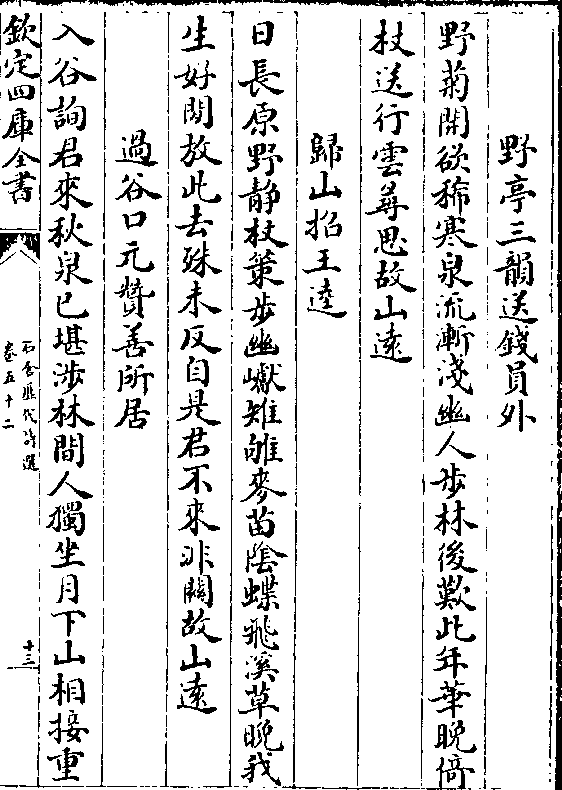 野亭三韻送錢員外
野菊開欲稀寒泉流漸淺幽人步林後歎此年華晚倚
杖送行雲尋思故山遠
歸山招王逵
日長原野靜杖策步幽巘雉雊麥苗陰蝶飛溪草晚我
生好閒放此去殊未反自是君不來非關故山遠
過谷口元贊善所居
入谷詢君來秋泉已堪涉林間人獨坐月下山相接重
欽定四庫全書
石倉歷代詩選
卷五十二
十三